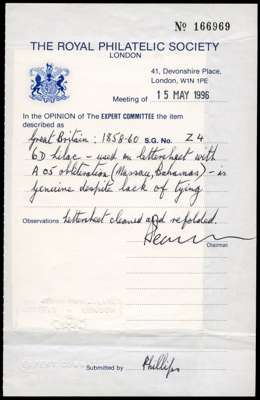 No 166969
THE ROYAL PHILATELIC SOCIETY
LONDON
41, Devonshire Place,
London, W1N 1PE
Meeting of 15 MAY 1996
In the OPINION of The EXPERT COMMITTEE the item
described as
Great Britain: 1858-60 S.G. No. Z4
6D lilac - used on lettersheet with
A 05 obliteration (Nassau, Bahamas) - is
genuine despite lack of tying
Observations. Lettersheet cleaned and refolded.
Chairman
Submitted by Phillips